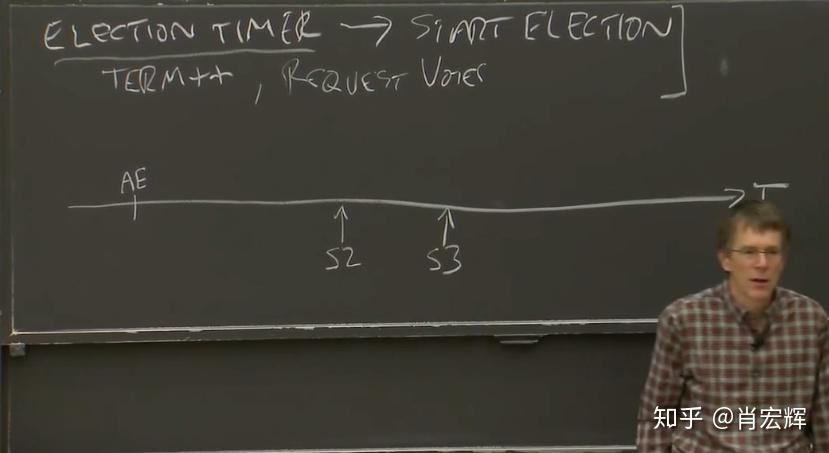 ELECTION TIMER → START ELECTION]
TERM++, REQUEST VOTES
AE
T
S2 S3
知乎 @肖宏辉